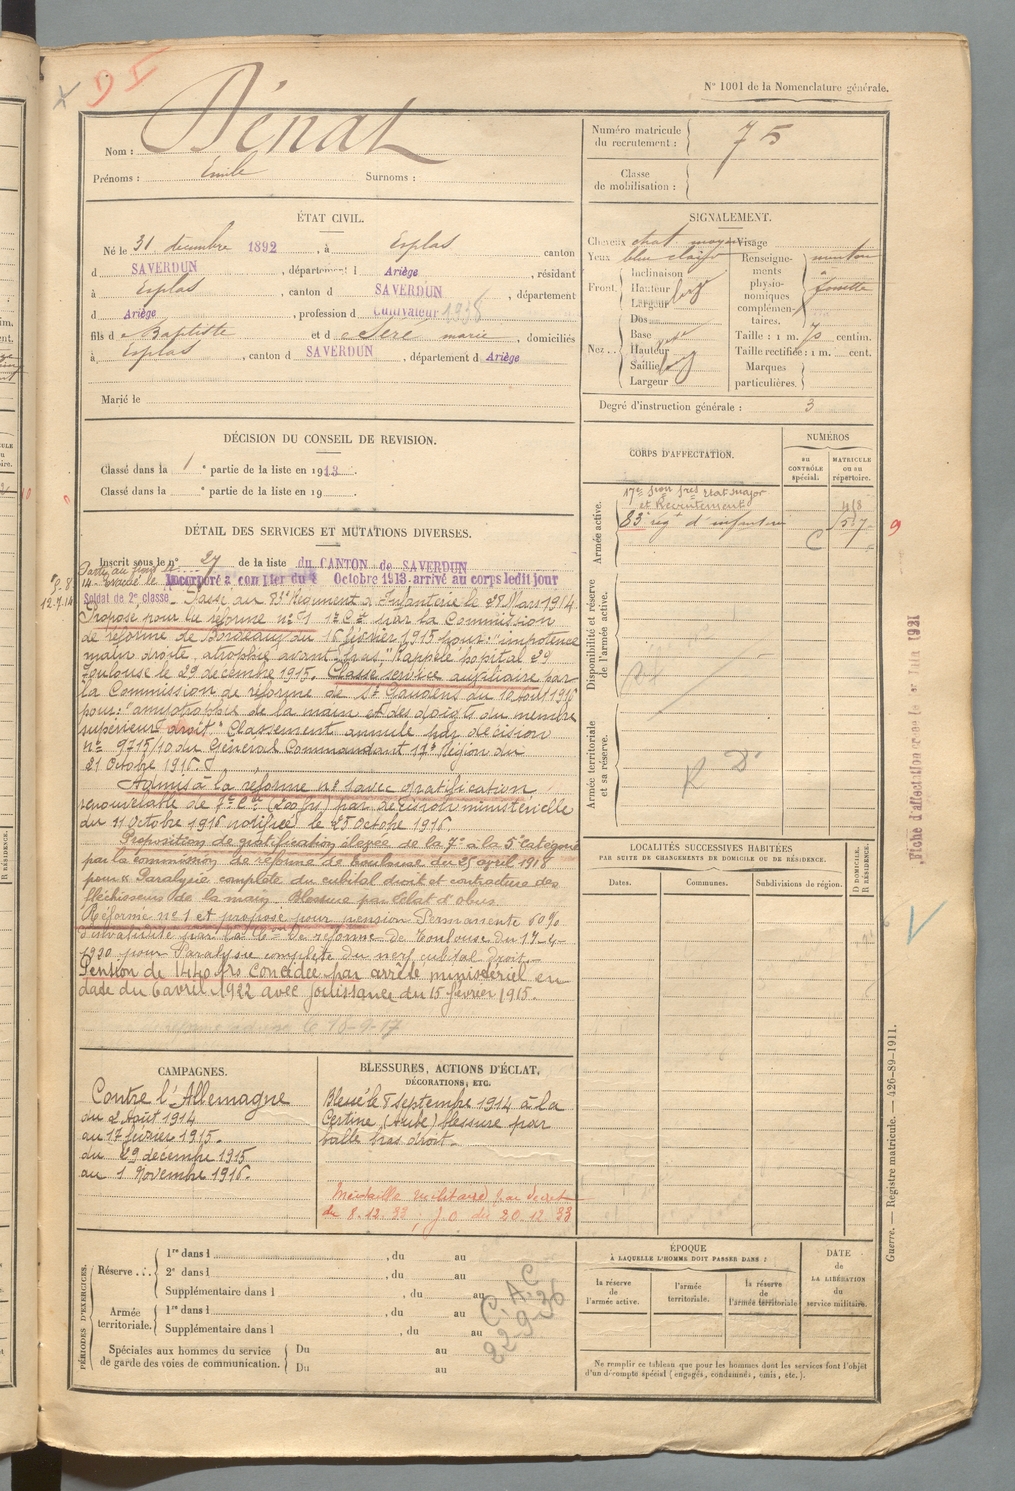 D I
N° 1001 de la Nomenclature générale.
Nom : Dénat
Prénoms : Émile Surnoms :
Numéro matricule du recrutement : 75
Classe de mobilisation :
ÉTAT CIVIL.
Né le 31 décembre 1892, à Esplas canton
d SAVERDUN, département d Ariège, résidant
à Esplas, canton d SAVERDUN, département
d Ariège, profession d Cultivateur 1938
fils d Baptiste et d Seré marie, domiciliés
à Esplas, canton d SAVERDUN, département d Ariège
Marié le
SIGNALEMENT.
Cheveux chat. moyen
Yeux bleu clair
Front. Inclinaison
Hauteur
Largeur
Nez . . Dos
Base
Hauteur
Saillie
Largeur
Visage
Renseignements physionomiques complémentaires. menton à fossette
Taille : 1 m. 70 centim.
Taille rectifiée : 1 m. cent.
Marques particulières.
Degré d'instruction générale : 3
DÉCISION DU CONSEIL DE REVISION.
Classé dans la 1e partie de la liste en 1913.
Classé dans la e partie de la liste en 19
DÉTAIL DES SERVICES ET MUTATIONS DIVERSES.
Inscrit sous le n° 27 de la liste du CANTON de SAVERDUN
Incorporé à compter du Octobre 1913 arrivé au corps ledit jour
Soldat de 2e classe. Passé au 83e Régiment d'Infanterie le 28 Mars 1914.
Proposé pour la réforme n° 1 par la Commission
de réforme de Bordeaux du 16 février 1915 pour : "impotence
main droite, atrophie avant-bras," Rappelé hopital 29
Toulouse le 29 décembre 1915. Classé service auxiliaire par
la Commission de réforme de St Gaudens du 10 août 1916
pour : "amyotrophie de la main et des doigts du membre
supérieur droit." Classement annulé par décision
n° 9715/10 du Général Commandant 17e Région du
21 Octobre 1916
Admis à la réforme n° 1 avec gratification
renouvelable de 7e Cie (200 frs) par décision ministérielle
du 11 Octobre 1916 notifiée le 25 Octobre 1916
Proposition de gratification élevée de la 7e à la 5e catégorie
par la commission de réforme de Toulouse du 25 avril 1918
pour « Paralysie complète du cubital droit et contracture des
fléchisseurs de la main. Blessure par éclat d'obus.
Réformé n° 1 et proposé pour pension Permanente 60%
d'invalidité par la Con de réforme de Toulouse du 17-4-
1920 pour Paralysie complète du nerf cubital droit.
Pension de 1440 frs concédée par arrêté ministériel en
date du 6 avril 1922 avec jouissance du 15 février 1915.
CORPS D'AFFECTATION.
NUMÉROS
au CONTRÔLE spécial.
MATRICULE ou au répertoire.
Armée active.
17e Son Sres Etat Major
et Recrutement
83e régt d'infanterie
Disponibilité et réserve de l'armée active.
Armée territoriale et sa réserve.
Fiche d'affectation
LOCALITÉS SUCCESSIVES HABITÉES
PAR SUITE DE CHANGEMENTS DE DOMICILE OU DE RÉSIDENCE.
Dates.
Communes.
Subdivisions de région.
D DOMICILE.
R RÉSIDENCE.
CAMPAGNES.
Contre l'Allemagne
du 2 Août 1914
au 17 février 1915.
du 29 décembre 1915
au 1 Novembre 1916.
BLESSURES, ACTIONS D'ÉCLAT,
DÉCORATIONS, ETC.
Blessé le 8 septembre 1914 à la
Certine, (Aube) blessure par
balle bras droit.
Médaille militaire par décret
du 8.12.33, J.O. du 20.12.33
PÉRIODES D'EXERCICES.
Réserve . .
1re dans l , du au
2e dans l , du au
Supplémentaire dans l , du au
Armée territoriale.
1re dans l , du au
Supplémentaire dans l , du au
Spéciales aux hommes du service
de garde des voies de communication.
Du au
Du au
C.A.C
22 9 36
ÉPOQUE
À LAQUELLE L'HOMME DOIT PASSER DANS :
la réserve de l'armée active.
l'armée territoriale.
la réserve de l'armée territoriale
DATE de LA LIBÉRATION du service militaire.
Ne remplir ce tableau que pour les hommes dont les services font l'objet
d'un décompte spécial (engagés, condamnés, omis, etc.).
Guerre. — Registre matricule. — 426-89-1911.